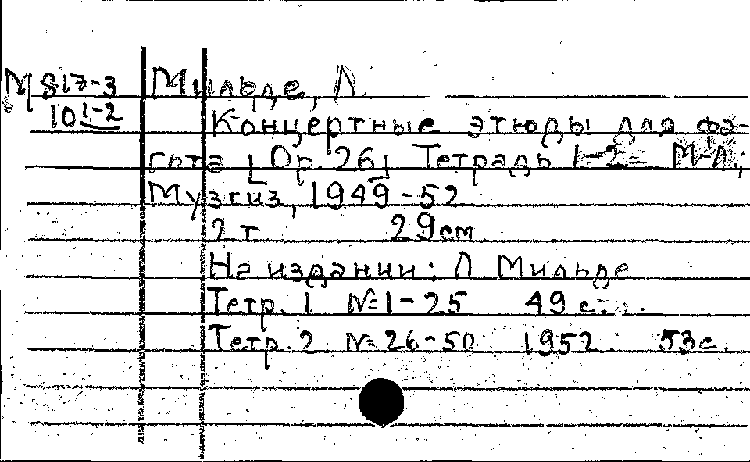 М 817-3 Мильде, Л.
101-2 Концертные этюды для фа-
гота [Op. 26] Тетрадь 1-2 М-Л;
Музгиз, 1949-52
2 т 29 см
На издании: Л Мильде
Тетр. 1 №1-25 49 с.
Тетр. 2 № 26-50 1952. 53 с